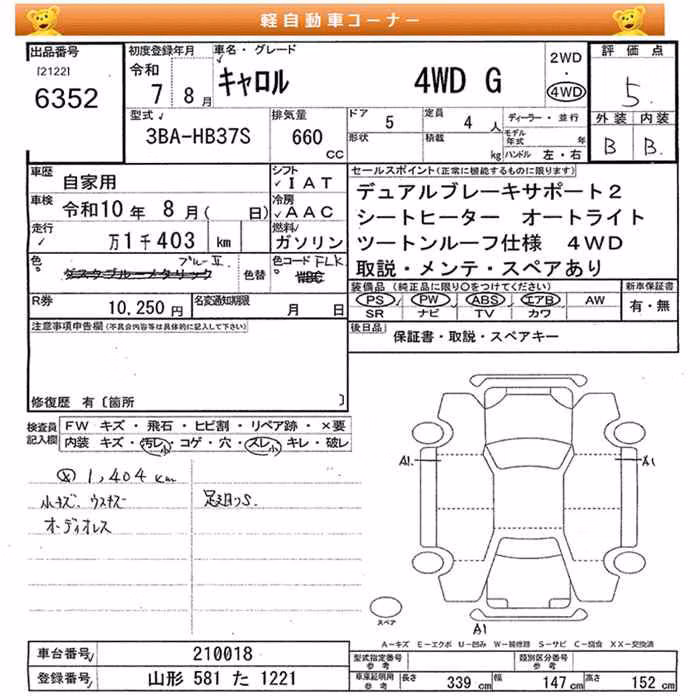 軽自動車コーナー
出品番号
[2122]
6352
初度登録年月
令和
7 8 月
車名・グレード
キャロル 4WD G
2WD
・
4WD
評価点
5
外装 内装
B B
型式
3BA-HB37S
排気量
660
cc
ドア
5
定員
4 人
形状
積載
kg
ディーラー・並行
モデル年式 年
ハンドル 左・右
車歴
自家用
シフト
IAT
車検
令和10年 8月( 日)
冷房
AAC
走行
万1千403 km
燃料
ガソリン
色
ブルーII
ダスクブルーメタリック
色替
色コード FLK
WBC
R券
10,250円
名変通知期限
月 日
セールスポイント(正常に機能するものに限ります)
デュアルブレーキサポート2
シートヒーター オートライト
ツートンルーフ仕様 4WD
取説・メンテ・スペアあり
装備品(純正品に限り○をつけてください)
PS PW ABS エアB AW
SR ナビ TV カワ
新車保証書
有・無
後日品
保証書・取説・スペアキー
注意事項申告欄(不具合内容等は具体的に記入して下さい)
修復歴 有〔箇所 〕
検査員
記入欄
FW キズ・飛石・ヒビ割・リペア跡・×要
内装 キズ・汚レ小・コゲ・穴・スレ小・キレ・破レ
1,404 km
小キズ、ウスキズ
オーディオレス
A1
A1
スペア
A1
A-キズ E-エクボ U-凹み W-補修跡 S-サビ C-腐食 XX-交換済
車台番号
210018
登録番号
山形 581 た 1221
型式指定番号
参考
類別区分番号
参考
車庫証明用
参考
長さ 339 cm
幅 147 cm
高さ 152 cm